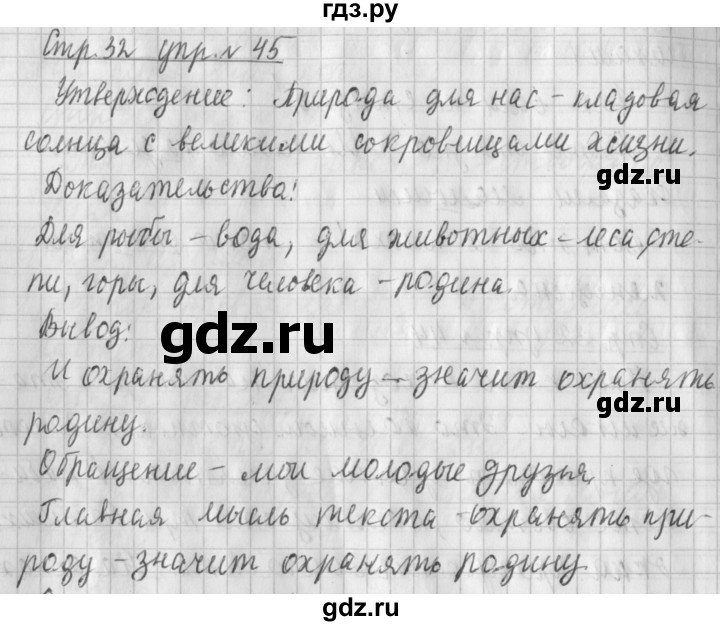 гдз.ру
Стр. 32 упр. № 45
Утверждение: Природа для нас - кладовая
солнца с великими сокровищами жизни.
gdz.ru
Доказательства:
Для рыбы - вода, для животных - леса, сте-
пи, горы, для человека - родина.
Вывод:
gdz.ru
И охранять природу - значит охранять
gdz.ru
родину.
Обращение - мои молодые друзья.
Главная мысль текста - охранять при-
роду - значит охранять родину
gdz.ru